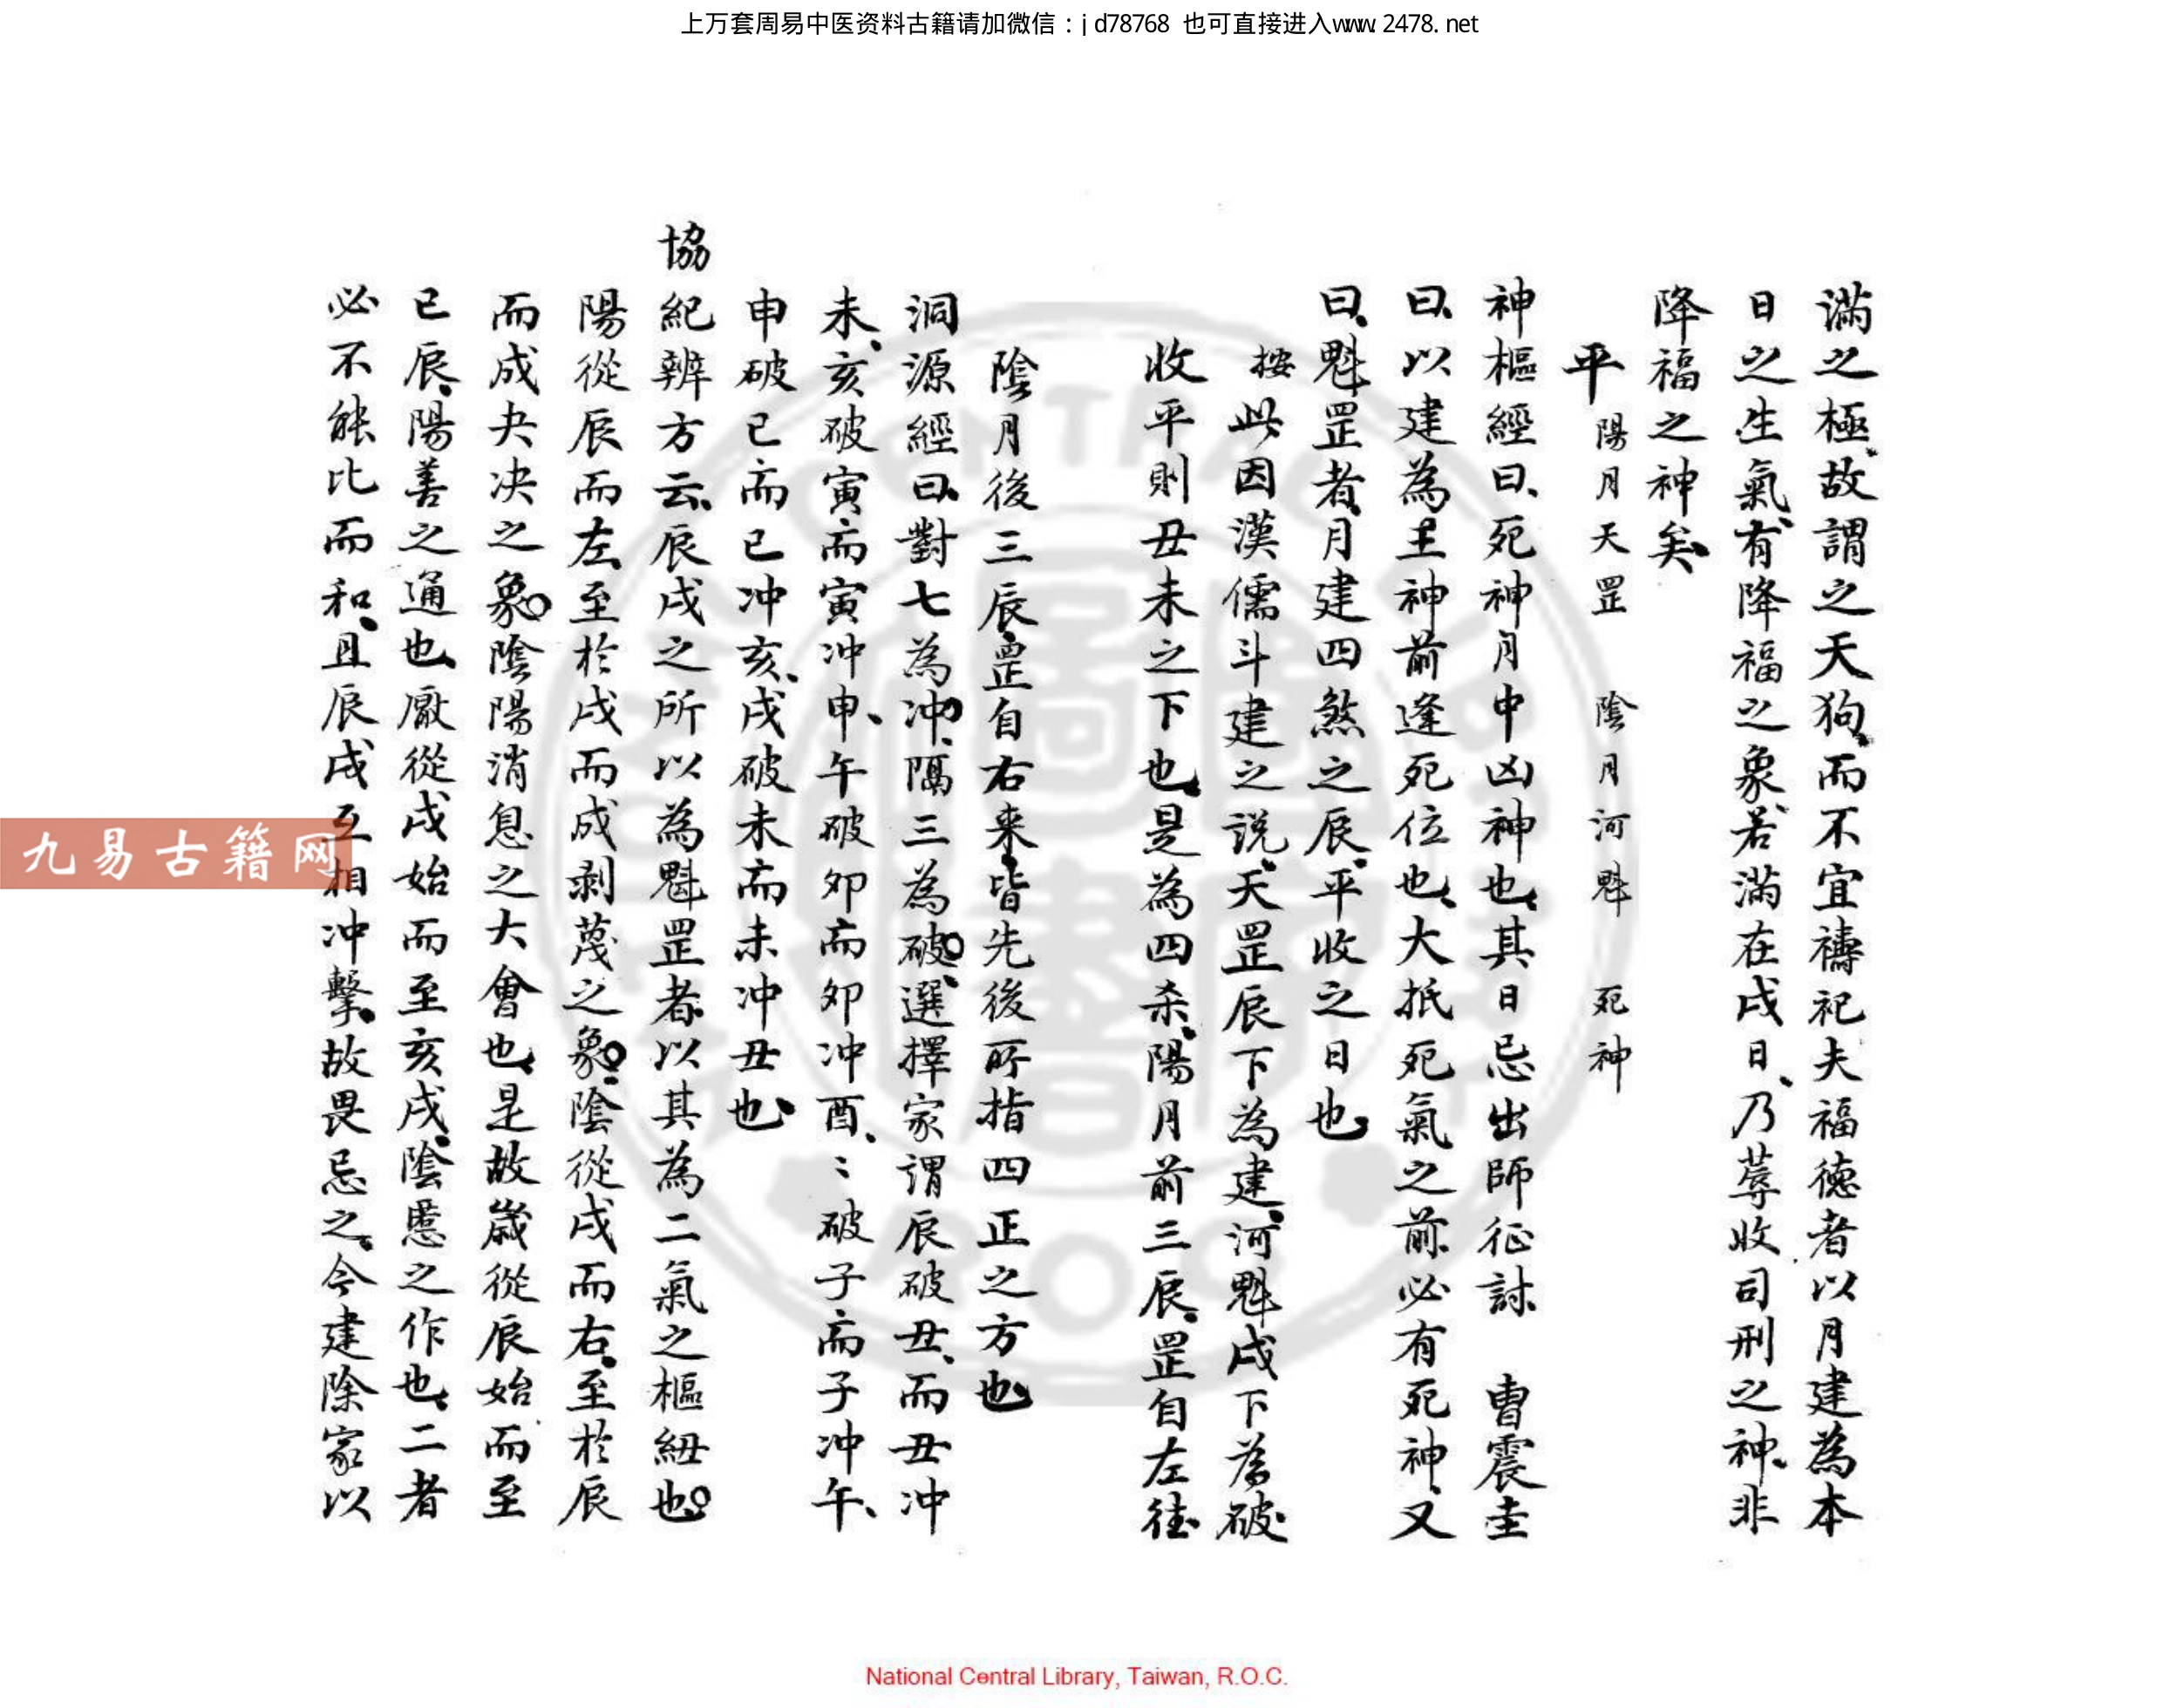 上万套周易中医资料古籍请加微信：jd78768 也可直接进入www.2478.net
滿之極、故謂之天狗、而不宜禱祀夫福德者以月建為本
日之生氣、有降福之象、若滿在戌日、乃蓐收司刑之神、非
降福之神矣、
平 陽月天罡 陰月河魁 死神
神樞經曰、死神月中凶神也、其日忌出師征討 曹震圭
曰、以建為主神前逢死位也、大抵死氣之前、必有死神、又
曰、魁罡者、月建四煞之辰、平收之日也、
按此因漢儒斗建之説、天罡辰下為建、河魁戌下為破
收平則丑未之下也、是為四杀、陽月前三辰、罡自左徃
陰月後三辰、罡自右来、皆先後所指四正之方也、
洞源經曰、對七為冲、隔三為破、選擇家謂辰破丑、而丑冲
未、亥破寅而寅冲申、午破夘而夘冲酉、〻破子而子冲午、
申破巳而巳冲亥、戌破未而未冲丑也、
協紀辨方云、辰戌之所以為魁罡者、以其為二氣之樞紐也。
陽從辰而左、至於戌而成剥蔑之象。陰從戌而右、至於辰
而成夬决之象。陰陽消息之大會也、是故歳從辰始而至
已辰、陽善之通也、厭從戌始而至亥戌、陰慝之作也、二者
必不能比而和、且辰戌互相冲擊、故畏忌之、今建除家以
九易古籍网
National Central Library, Taiwan, R.O.C.